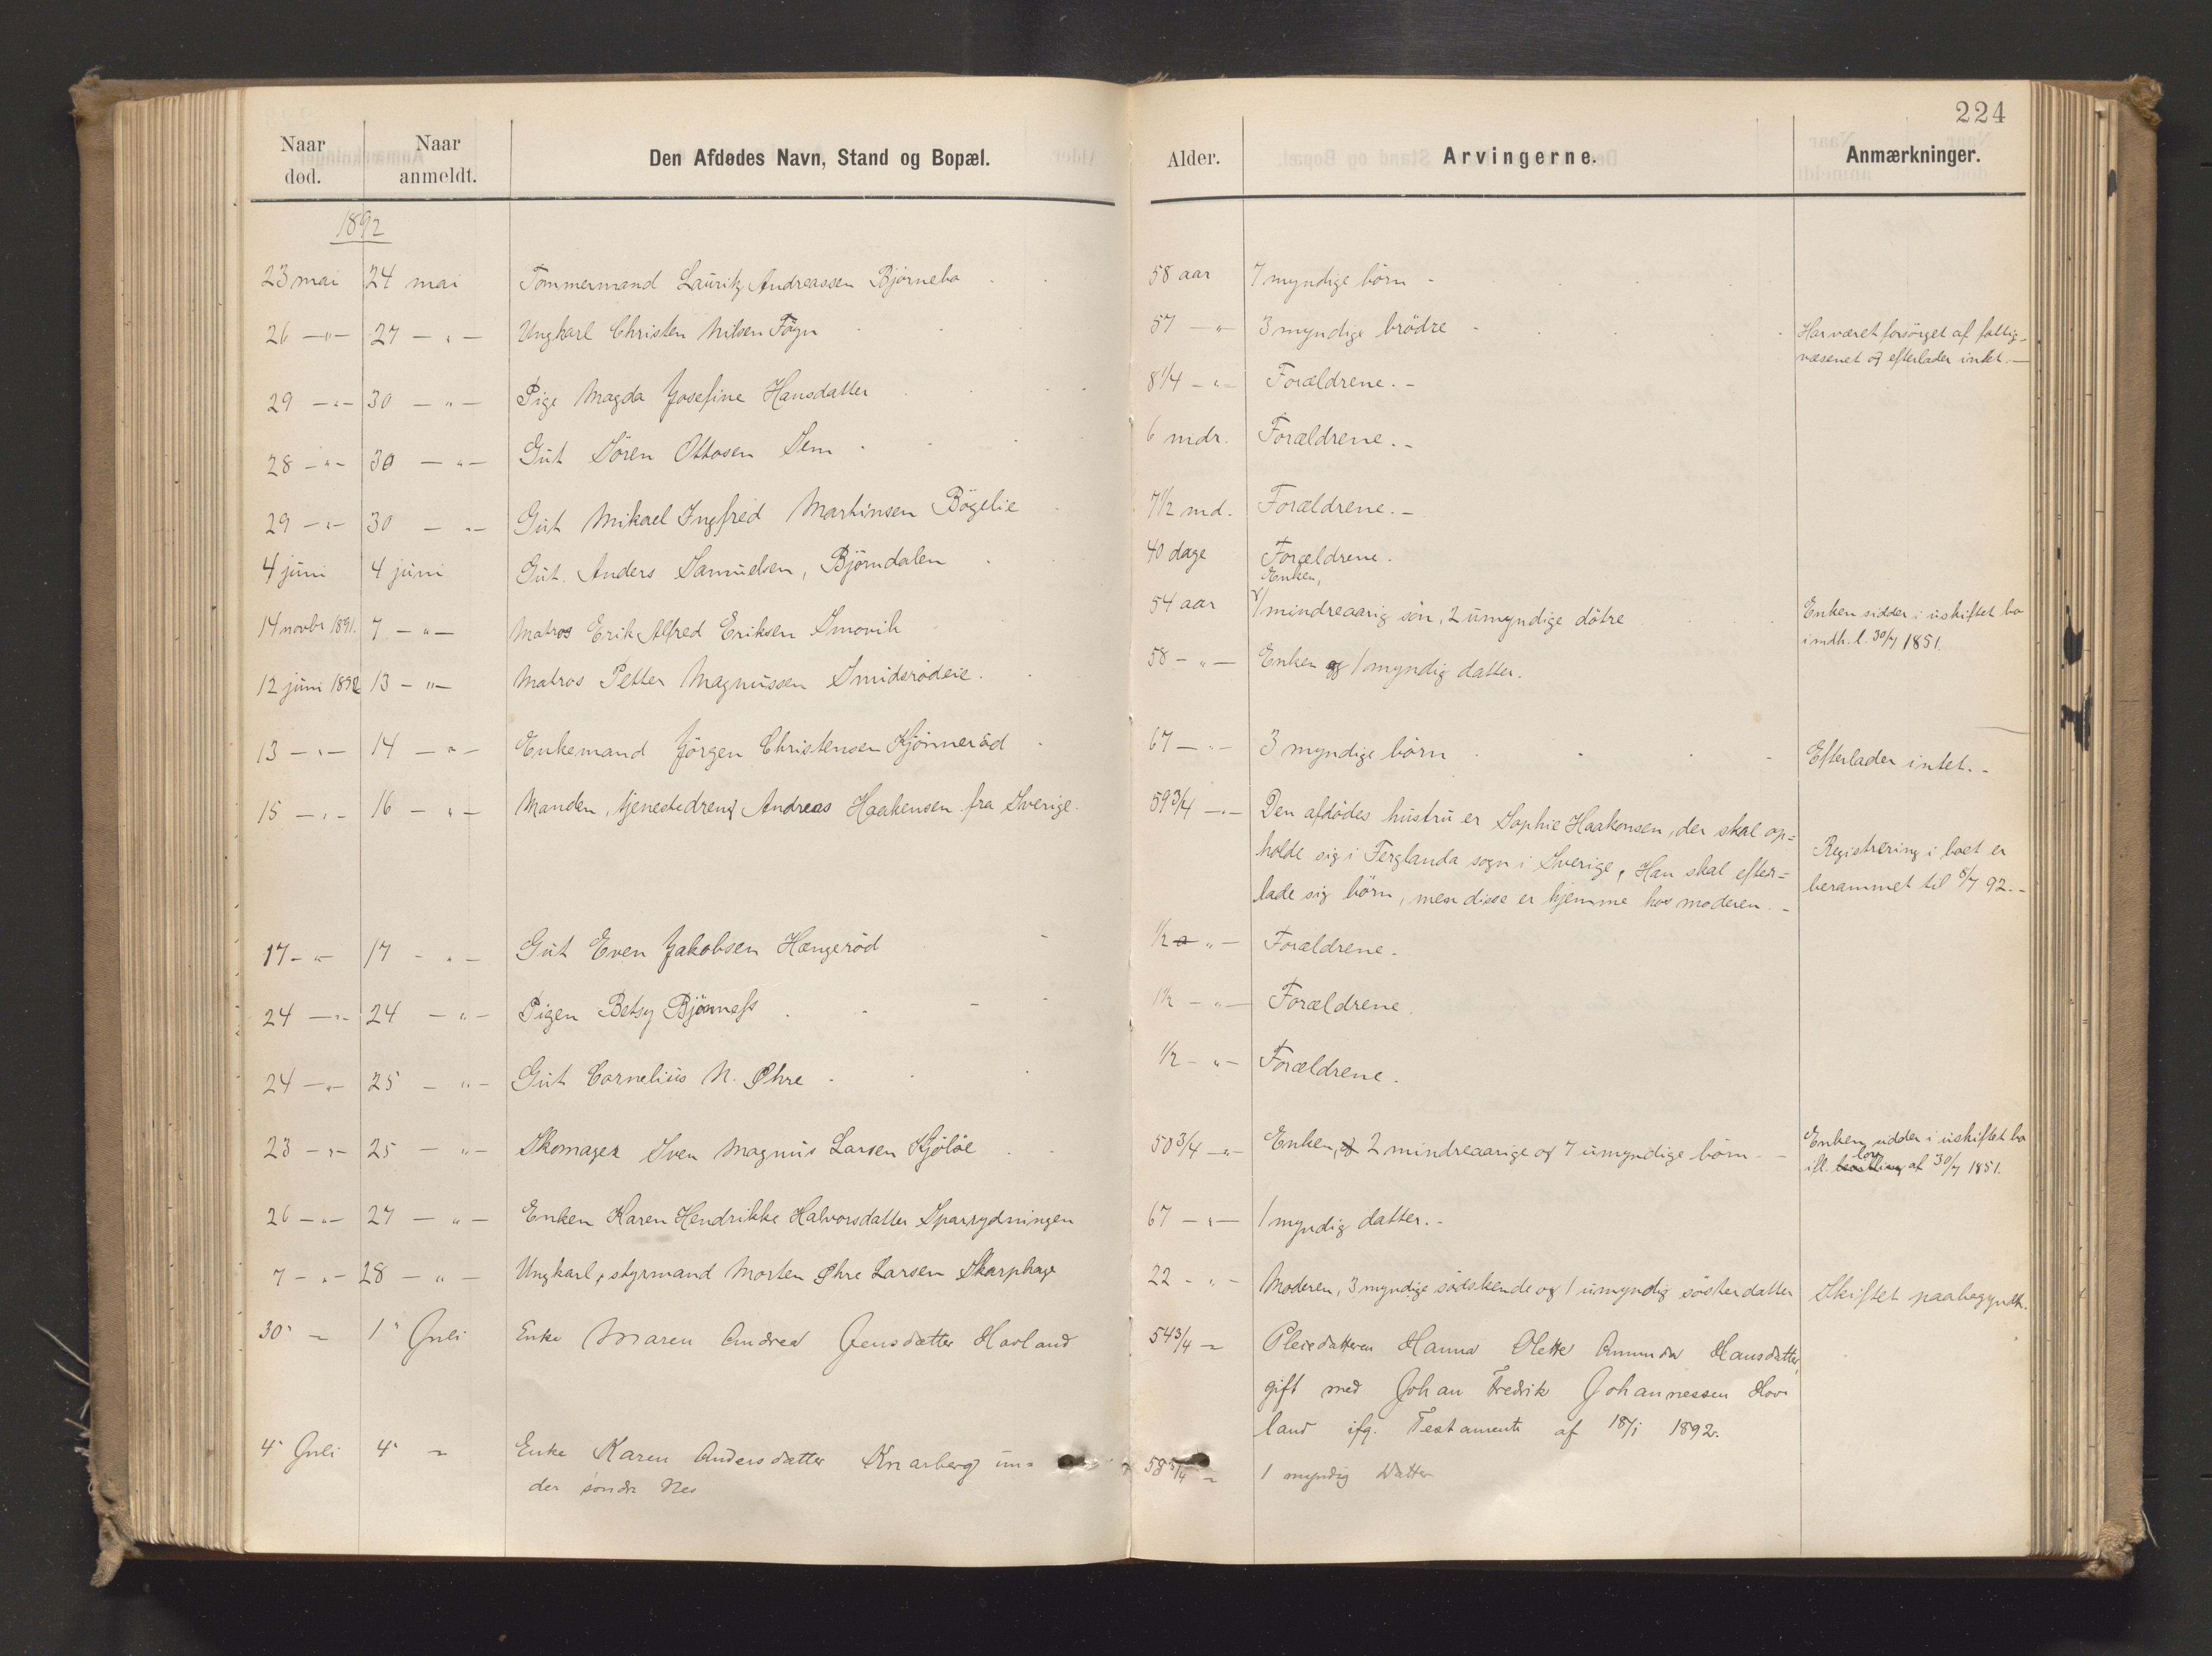 224
Naar død. Naar anmeldt. Den Afdødes Navn, Stand og Bopæl. Alder. Arvingerne. Anmærkninger.
1892
23 mai 24 mai Tömmermand Lauritz Andreassen Björnebo 58 aar 7 myndige börn -
26 -"- 27 -"- Ungkarl Christen Nilsen Fögn 57 -"- 3 myndige brödre - Har været forsörget af fattig-
væsenet og efterlader intet.-
29 -"- 30 -"- Pige Magda Josefine Hansdatter 8 1/4 -"- Forældrene.-
28 -"- 30 -"- Gut Sören Ottosen Sem 6 mdr. Forældrene.-
29 -"- 30 -"- Gut Mikael Ingfred Martinsen Bögelie 7 1/2 md. Forældrene.-
4 juni 4 juni Gut Anders Samuelsen, Björndalen 40 dage Forældrene.
Enken,
14 novbr 1891. 7 -"- Matros Erik Alfred Eriksen Smovik 54 aar 1 mindreaarig sön, 2 umyndige dötre Enken sidder i uskiftet bo
i mdh. l. 30/7 1851.
12 juni 1892 13 -"- Matros Petter Magnussen Smidsrödeie. 58 -"- Enken og 1 myndig datter.
13 -"- 14 -"- Enkemand Jörgen Christensen Kjönneröd 67 -"- 3 myndige börn Efterlader intet.-
15 -"- 16 -"- Manden, tjenestedreng Andreas Haakensen fra Sverige. 59 3/4 -"- Den afdödes hustru er Sophie Haakonsen, der skal op=
holde sig i Ferglanda sogn i Sverige, Han skal efter= Registrering i boet er
lade sig börn, men disse er hjemme hos moderen.- berammet til 8/7 92.-
17 -"- 17 -"- Gut Even Jakobsen Hængeröd 1/2 a -"- Forældrene.
24 -"- 24 -"- Pigen Betsy Björnness 1 1/2 -"- Forældrene.
24 -"- 25 -"- Gut Cornelius N. Øhre 1/2 -"- Forældrene.
23 -"- 25 -"- Skomager Sven Magnus Larsen Kjölöe 50 3/4 -"- Enken, og 2 mindreaarige og 7 umyndige börn - Enken sidder i uskiftet bo
ifl. lov af 30/7 1851.
26 -"- 27 -"- Enken Karen Hendrikke Halvorsdatter Sparrydningen 67 -"- 1 myndig datter.-
7 -"- 28 -"- Ungkarl, styrmand Morten Øhre Larsen Skarphage 22 -"- Moderen, 3 myndige södskende og 1 umyndig sösterdatter Skiftet paabegyndt.
30 " 1 Juli Enke Maren Andrea Jensdatter Havland 54 3/4 " Pleiedatteren Hanna Olette Amunda Hansdatter,
gift med Johan Fredrik Johannessen Hov-
land ifg. Testamente af 18/1 1892.
4 Juli 4 " Enke Karen Andersdatter Knarberg un= 58 3/4 " 1 myndig Datter
der söndre Nes